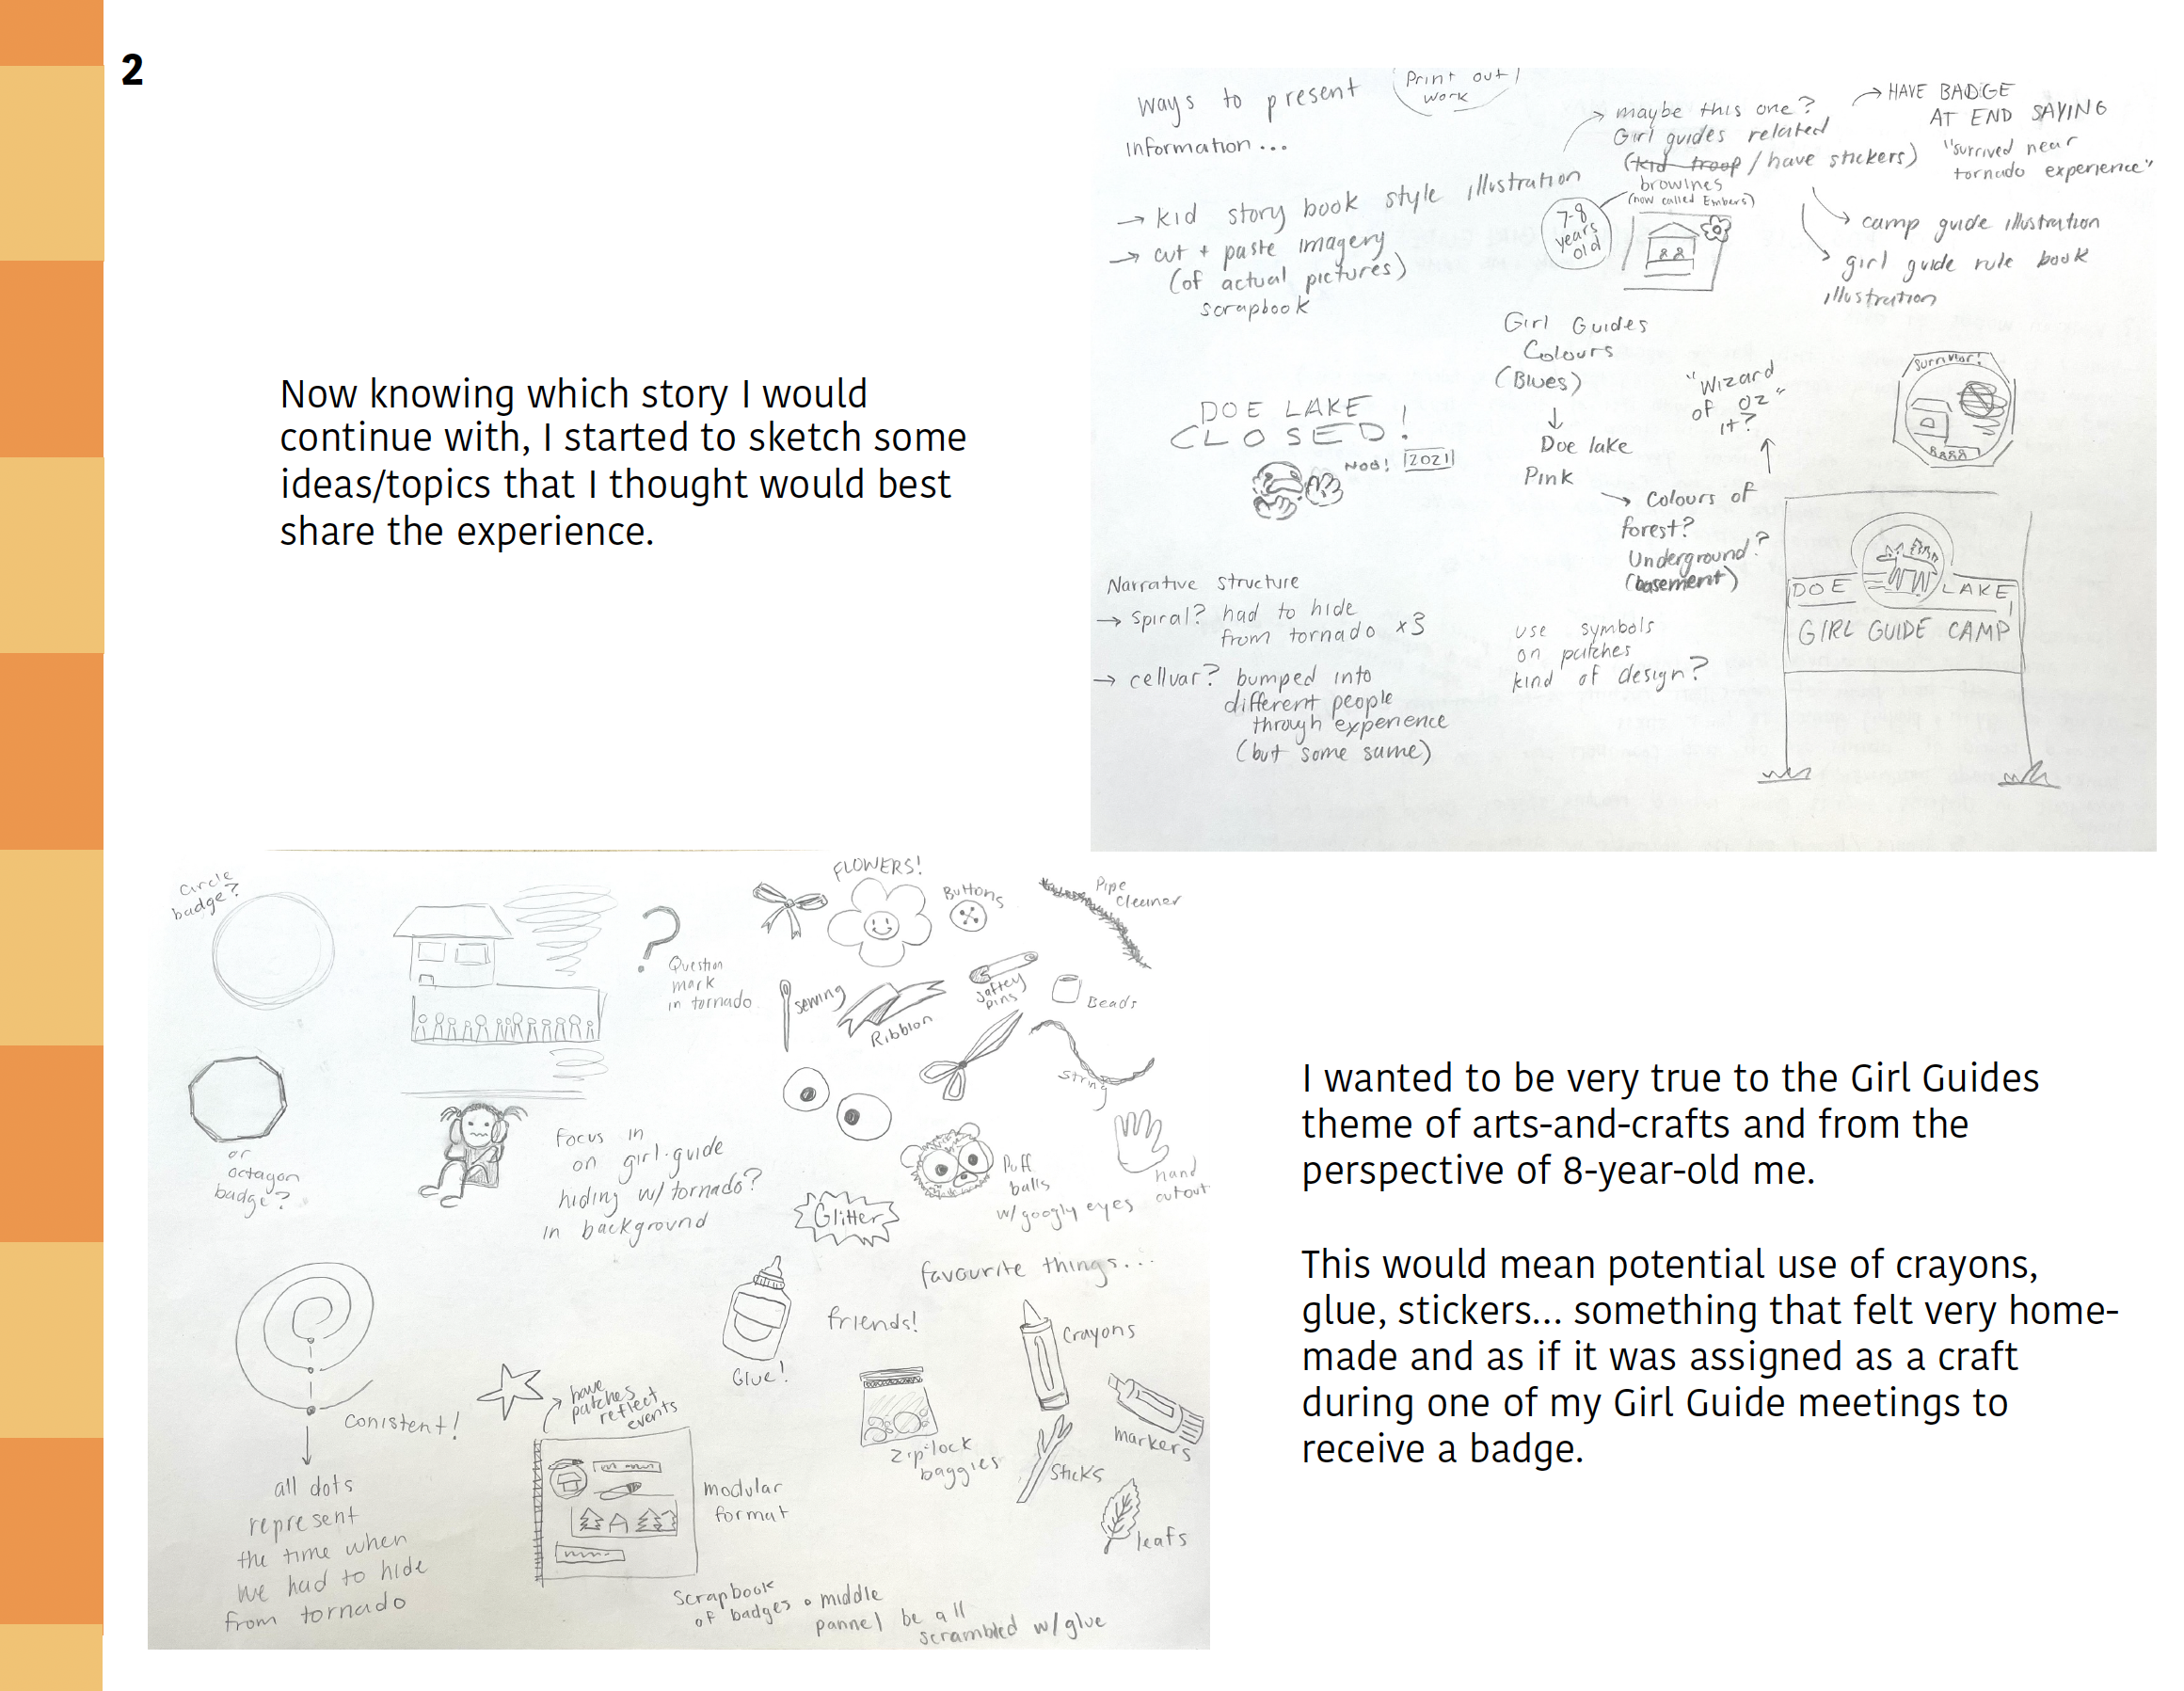 2
Now knowing which story I would
continue with, I started to sketch some
ideas/topics that I thought would best
share the experience.
ways to present
information...
Print out
work
→ kid story book style illustration
→ cut + paste imagery
(of actual pictures)
scrapbook
maybe this one?
Girl guides related
(kid troop / have stickers)
browines
(now called Embers)
7-8
years
old
→ HAVE BADGE
AT END SAYING
"survived near
tornado experience"
camp guide illustration
girl guide rule book
illustration
Girl Guides
Colours
(Blues)
↓
Doe lake
Pink
→ colours of
forest?
Underground?
(basement)
"Wizard
of oz"
it?
survivor!
DOE LAKE
CLOSED!
NOO! 2021
DOE LAKE
GIRL GUIDE CAMP
Narrative structure
→ spiral? had to hide
from tornado x3
→ celluar? bumped into
different people
through experience
(but some same)
use symbols
on patches
kind of design?
circle
badge?
or
octagon
badge?
?
Question
mark
in tornado
focus in
on girl-guide
hiding w/ tornado?
in background
FLOWERS!
Buttons
Pipe
cleaner
sewing
Ribbion
saftey
pins
Beads
string
Puff
balls
w/ googly eyes
hand
cutout
Glitter
favourite things...
Glue!
friends!
crayons
markers
zip-lock
baggies
sticks
leafs
conistent!
all dots
represent
the time when
we had to hide
from tornado
have
patches
reflect
events
modular
format
scrapbook
of badges
middle
pannel be all
scrambled w/ glue
I wanted to be very true to the Girl Guides
theme of arts-and-crafts and from the
perspective of 8-year-old me.
This would mean potential use of crayons,
glue, stickers... something that felt very home-
made and as if it was assigned as a craft
during one of my Girl Guide meetings to
receive a badge.